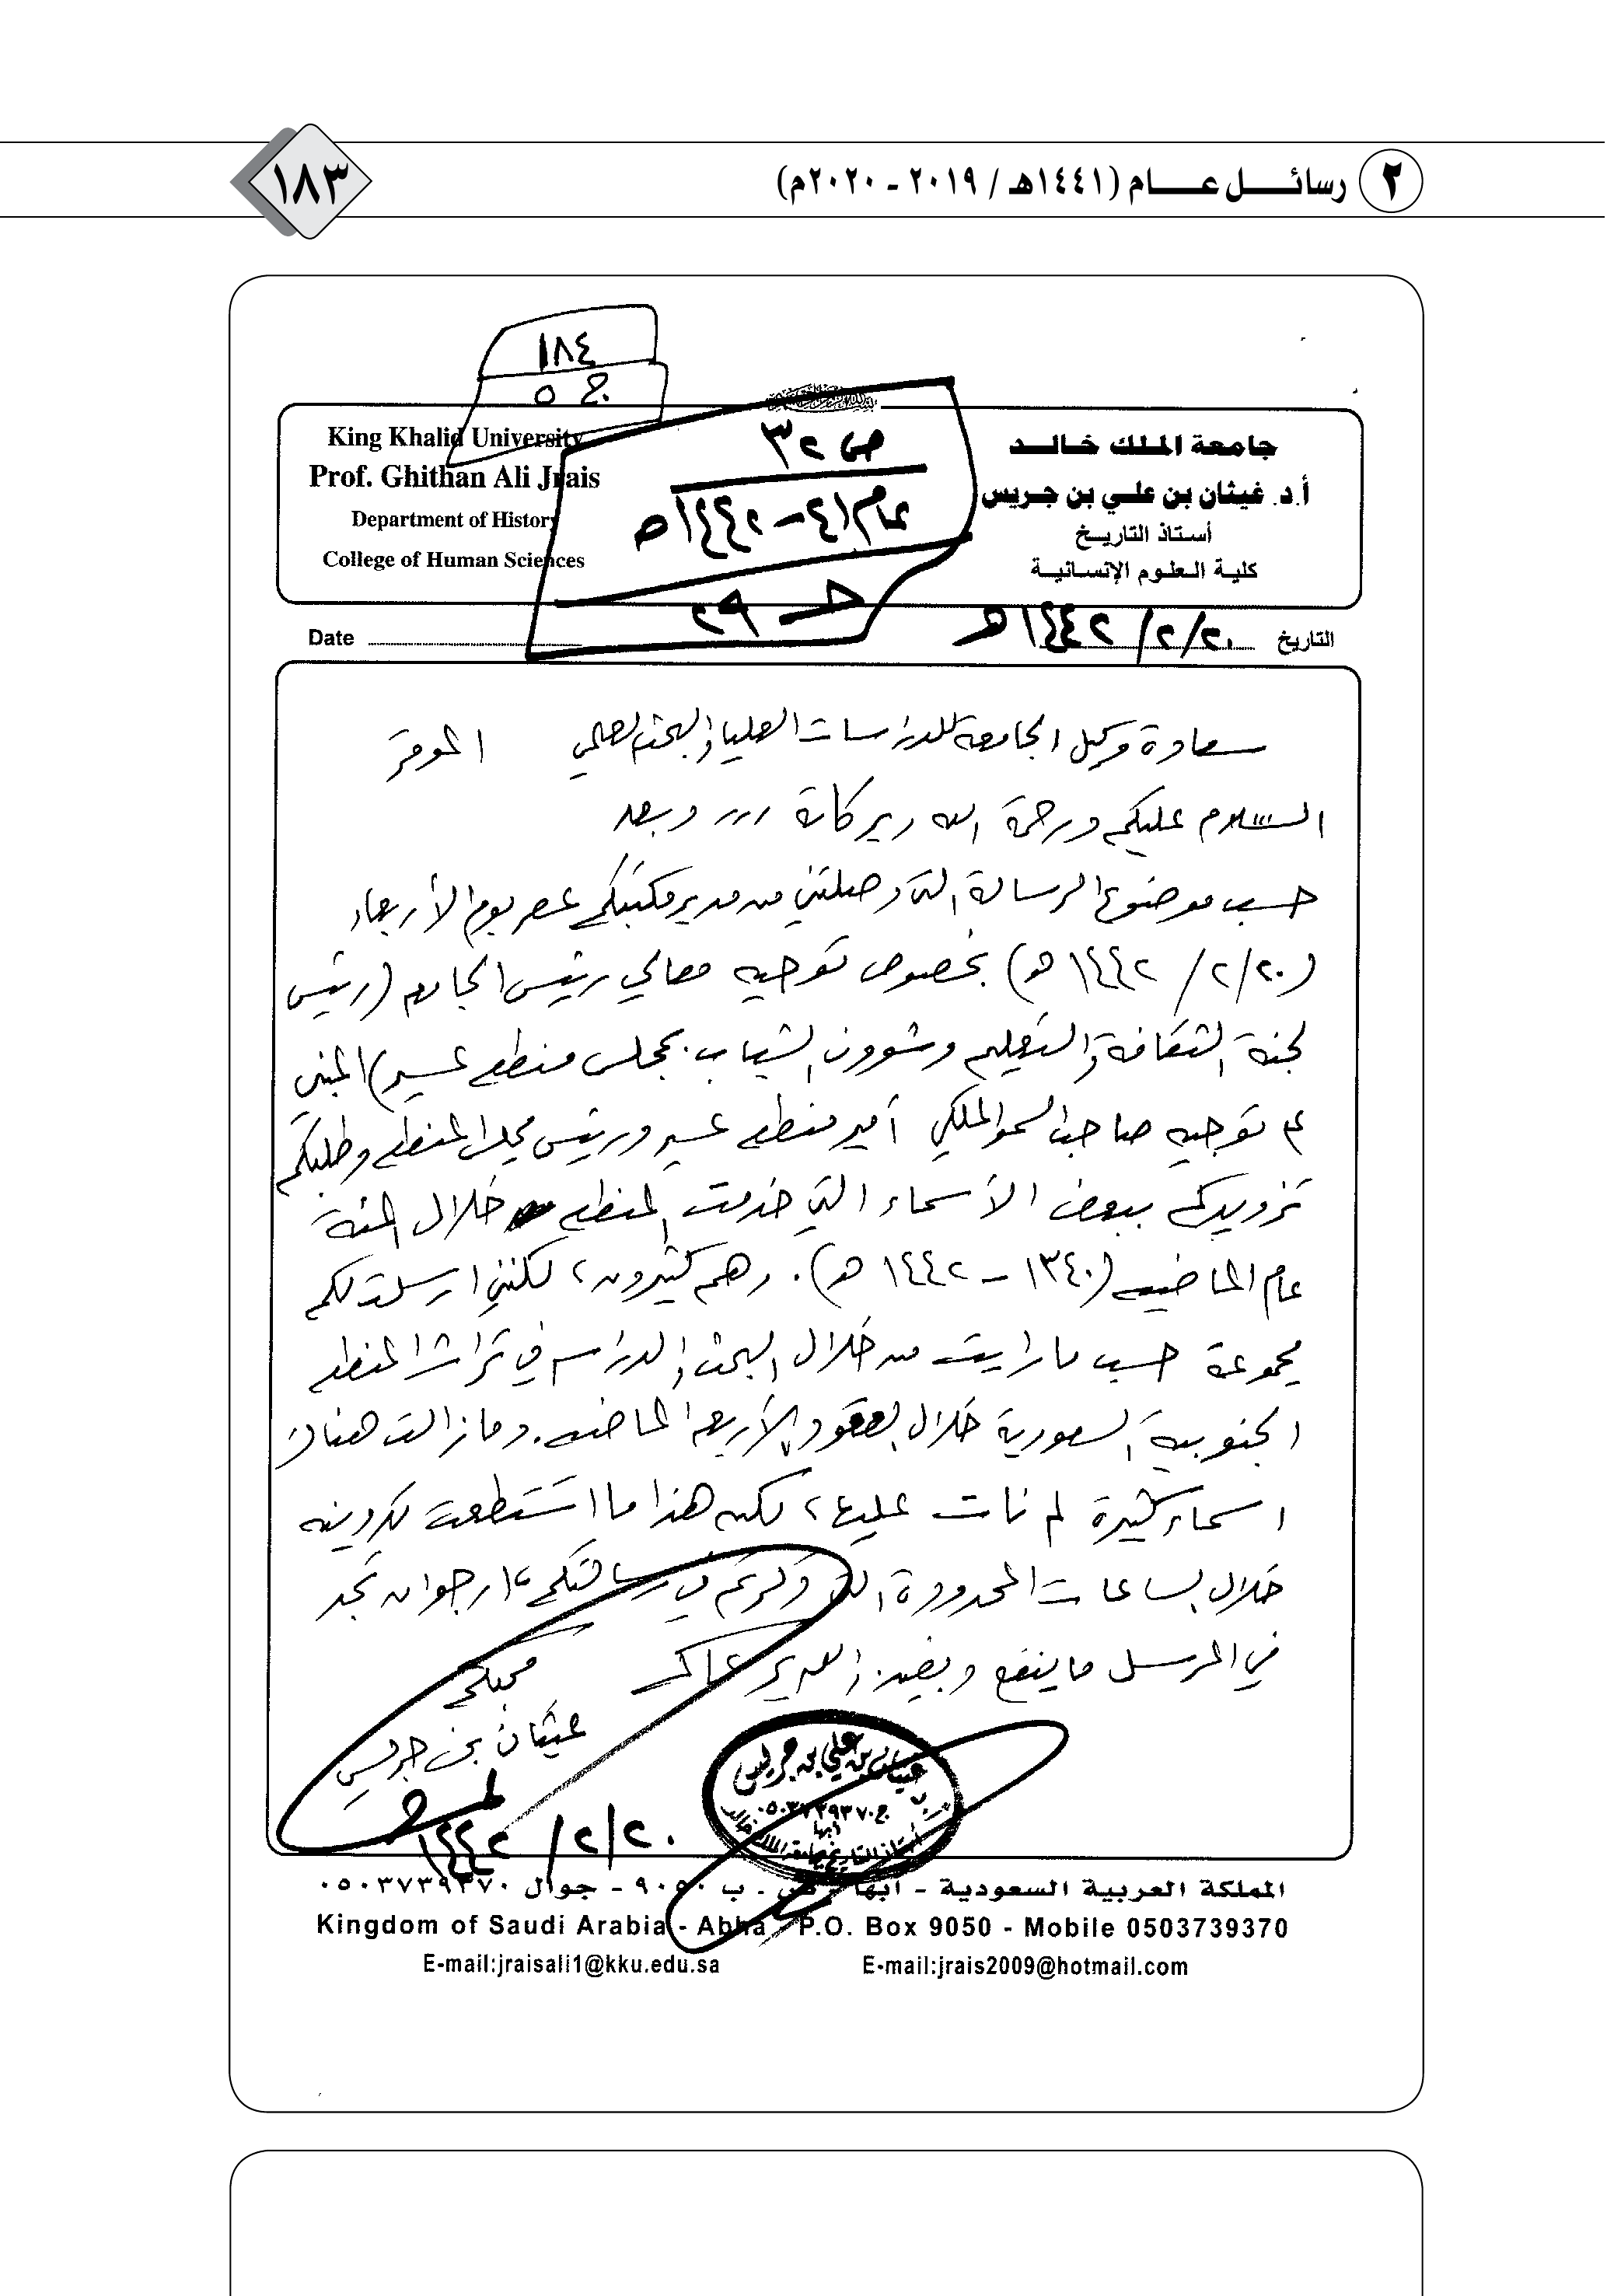 ٢ رسائل عام (١٤٤١هـ / ٢٠١٩ - ٢٠٢٠م)
١٨٣
١٨٤
ج ٥
King Khalid University
Prof. Ghithan Ali Jrais
Department of History
College of Human Sciences
ص ٣٢
عام ٤١ - ١٤٤٢هـ
حـ ٢٩
جامعة الملك خالد
أ.د. غيثان بن علي بن جريس
أستاذ التاريخ
كلية العلوم الإنسانية
التاريخ ٢٠/٢/١٤٤٢هـ
Date
سعادة وكيل الجامعة للدراسات العليا والبحث العلمي الموقر
السلام عليكم ورحمة الله وبركاته ... وبعد
حسب موضوع الرسالة التي وصلتني من مدير مكتبكم عصر يوم الأربعاء
(٢٠/٢/١٤٤٢هـ) بخصوص توجيه معالي رئيس الجامعة (رئيس
لجنة الثقافة والتعليم وشؤون الشباب بمجلس منطقة عسير) المبني
على توجيه صاحب السمو الملكي أمير منطقة عسير ورئيس مجلس المنطقة وطلبكم
تزويدكم ببعض الأسماء التي خدمت المنطقة خلال المئة
عام الماضية (١٣٤٠ - ١٤٤٢هـ). وهم كثيرون، لكنني ارسلت لكم
مجموعة حسب ما رايت من خلال البحث والدراسة في تراث المنطقة
الجنوبية السعودية خلال العقود الأربعة الماضية. ومازالت هناك
اسماء كثيرة لم نات عليها، لكن هذا ما استطعت تدوينه
خلال الساعات المحدودة التي ذكرتم في رسالتكم، ارجو ان تجد
في المرسل ما ينفع ويفيد. والله يرعاكم
محبكم
غيثان بن جريس
٢٠/٢/١٤٤٢
غيثان بن علي بن جريس
ج ٠٥٠٣٧٣٩٣٧٠
أبها
أستاذ التاريخ بجامعة الملك خالد
المملكة العربية السعودية - أبها - ص. ب ٩٠٥٠ - جوال ٠٥٠٣٧٣٩٣٧٠
Kingdom of Saudi Arabia - Abha - P.O. Box 9050 - Mobile 0503739370
E-mail:jraisali1@kku.edu.sa E-mail:jrais2009@hotmail.com